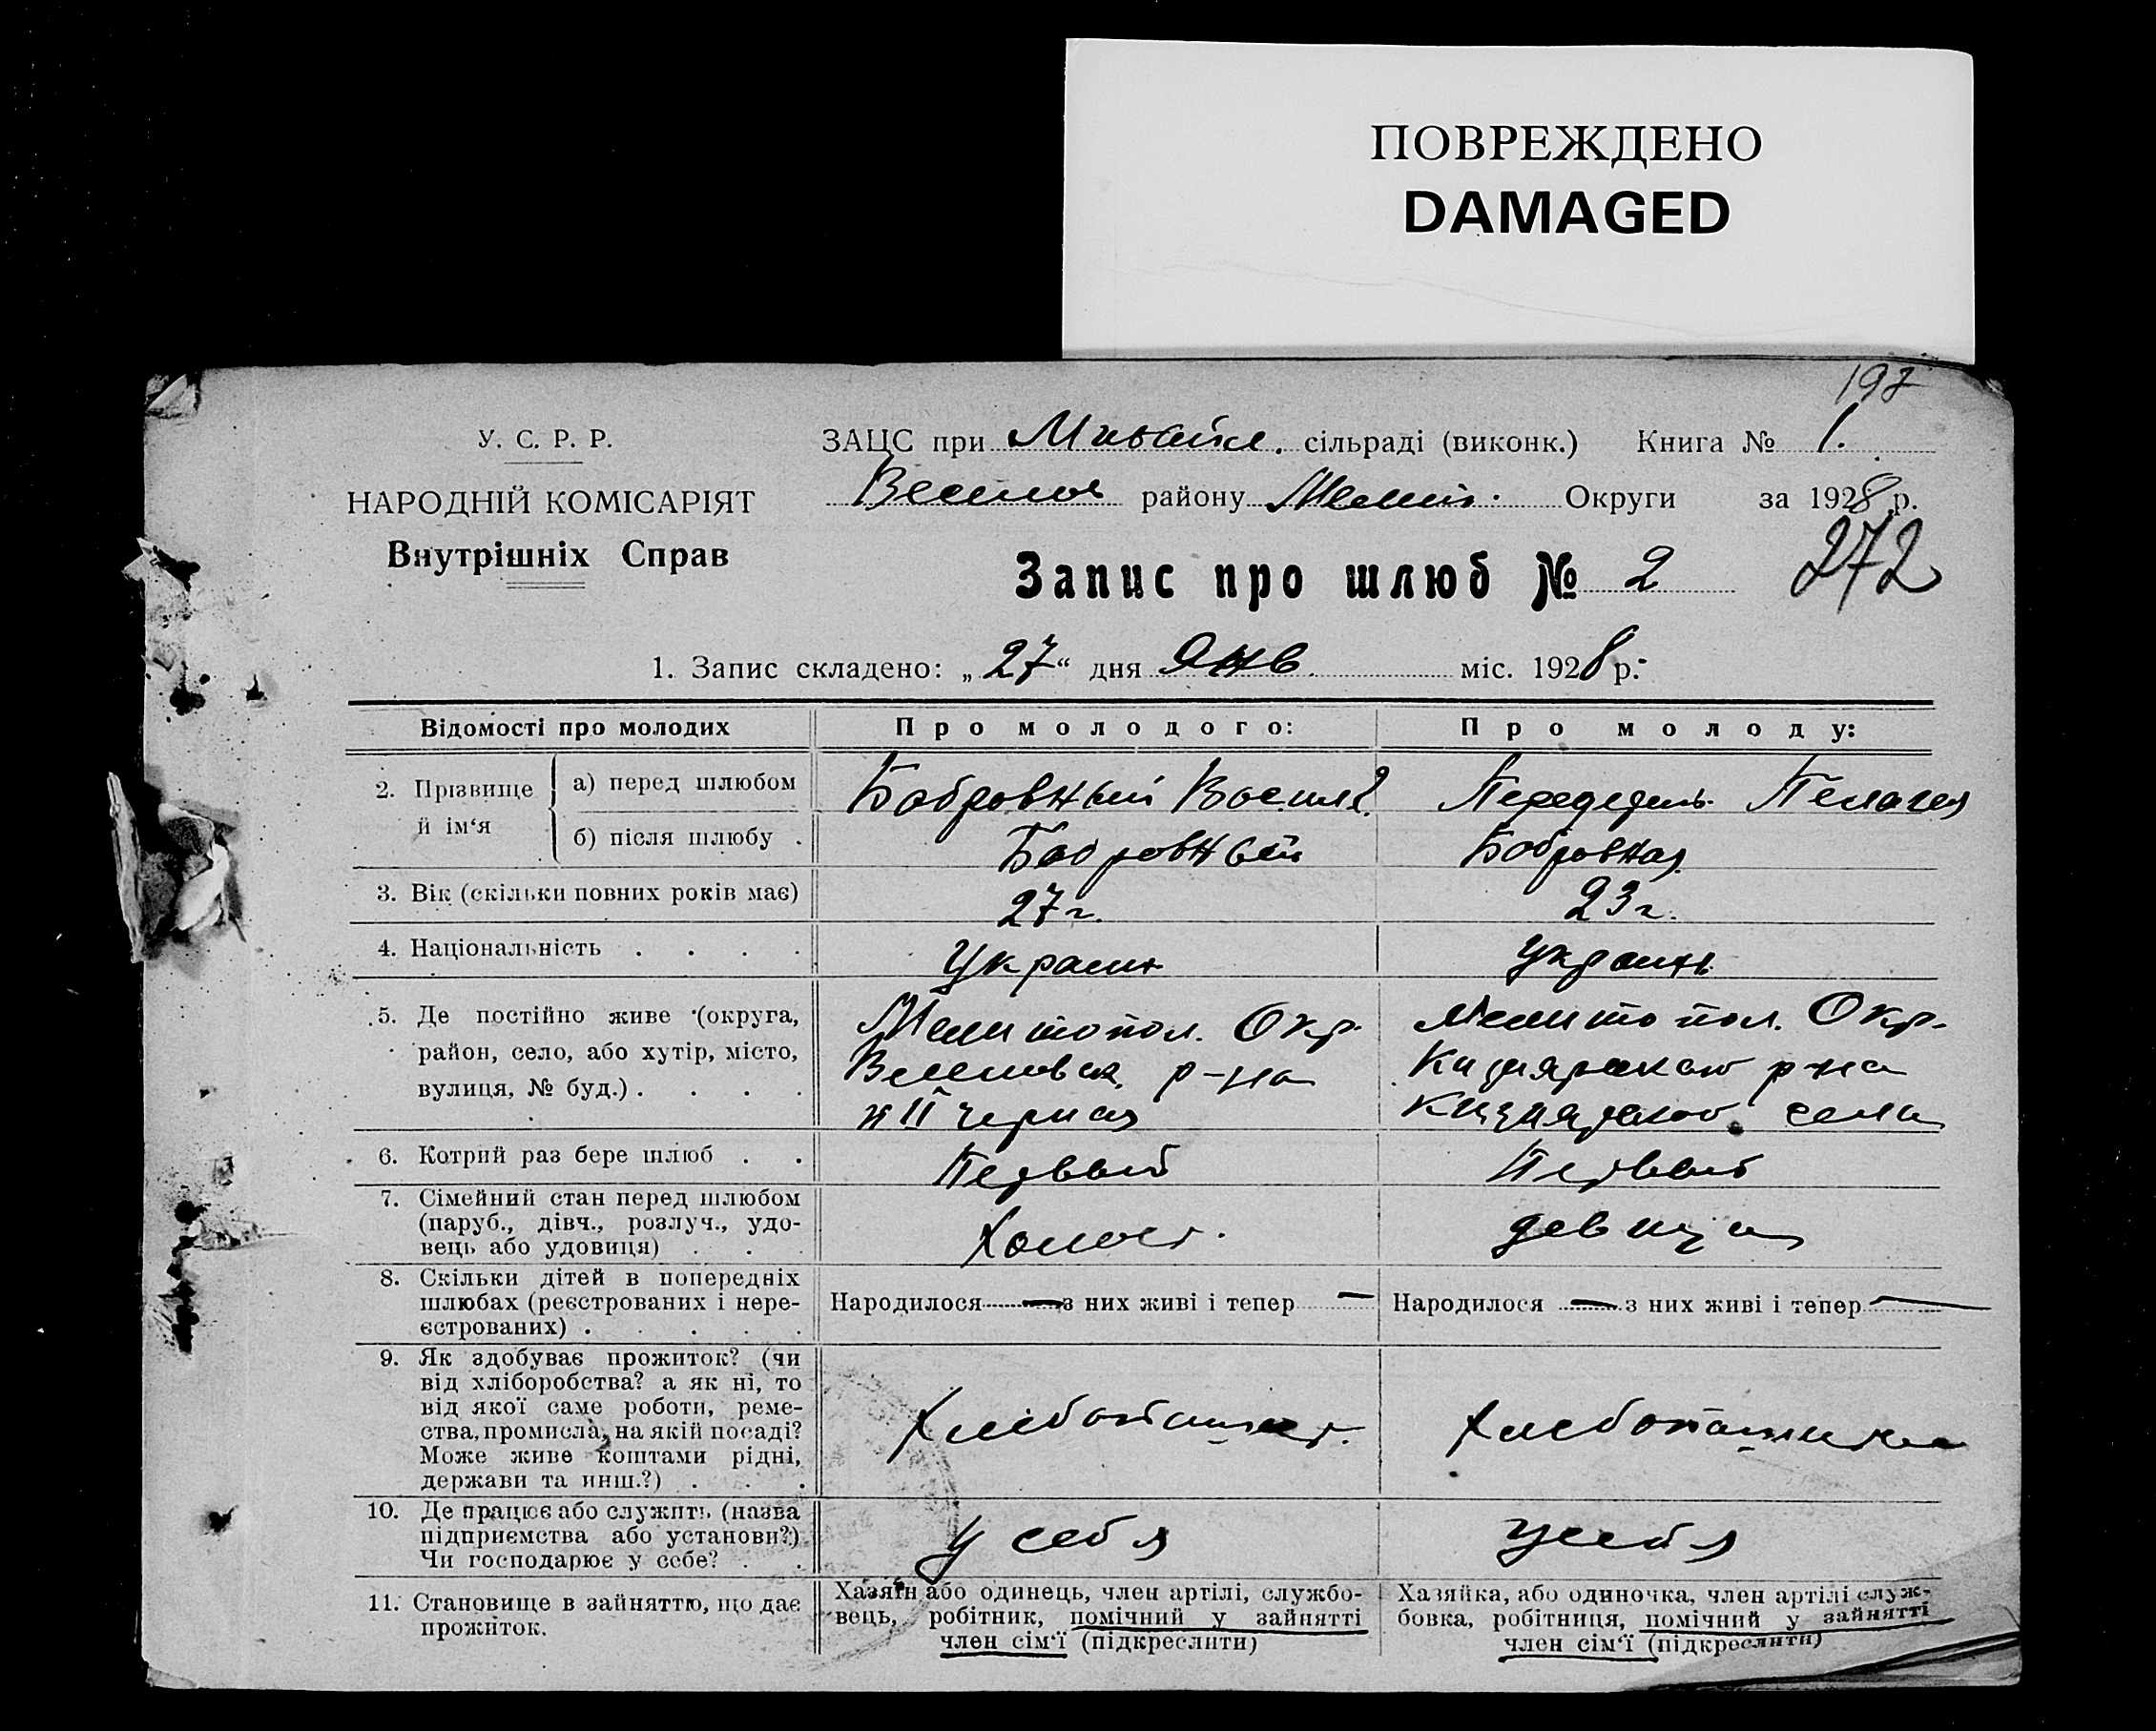 ПОВРЕЖДЕНО
DAMAGED
197
У. С. Р. Р.
НАРОДНІЙ КОМІСАРІЯТ
Внутрішніх Справ
ЗАЦС при сільраді (виконк.) Книга № 1.
району Округи за 1928 р.
Запис про шлюб № 2
272
1. Запис складено: „27“ дня Янв. міс. 1928 р.
Відомості про молодих
Про молодого:
Про молоду:
2. Прізвище й ім‘я
а) перед шлюбом
Бобровный Василь
Пелагея
б) після шлюбу .
Бобровный
Бобровная
3. Вік (скільки повних років має)
27 г.
23 г.
4. Національність . . . .
Украин
Украин
5. Де постійно живе (округа,
район, село, або хутір, місто,
вулиця, № буд.) . . . .
Мелитопол. Окр.
р-на
Мелитопол. Окр.
р-на
села
6. Котрий раз бере шлюб . .
Первый
Первый
7. Сімейний стан перед шлюбом
(паруб., дівч., розлуч., удо-
вець або удовиця) . . .
Холост.
девица
8. Скільки дітей в попередніх
шлюбах (реєстрованих і нере-
єстрованих) . . . . .
Народилося — з них живі і тепер —
Народилося — з них живі і тепер —
9. Як здобуває прожиток? (чи
від хліборобства? а як ні, то
від якої саме роботи, реме-
ства, промисла, на якій посаді?
Може живе коштами рідні,
держави та инш.?) . . .
Хлебопашест.
Хлебопашника
10. Де працює або служить (назва
підприємства або установи?)
Чи господарює у себе? . .
у себя
у себя
11. Становище в зайняттю, що дає
прожиток.
Хазяїн або одинець, член артілі, службо-
вець, робітник, помічний у зайнятті
член сім‘ї (підкреслити)
Хазяйка, або одиночка, член артілі служ-
бовка, робітниця, помічний у зайнятті
член сім‘ї (підкреслити)